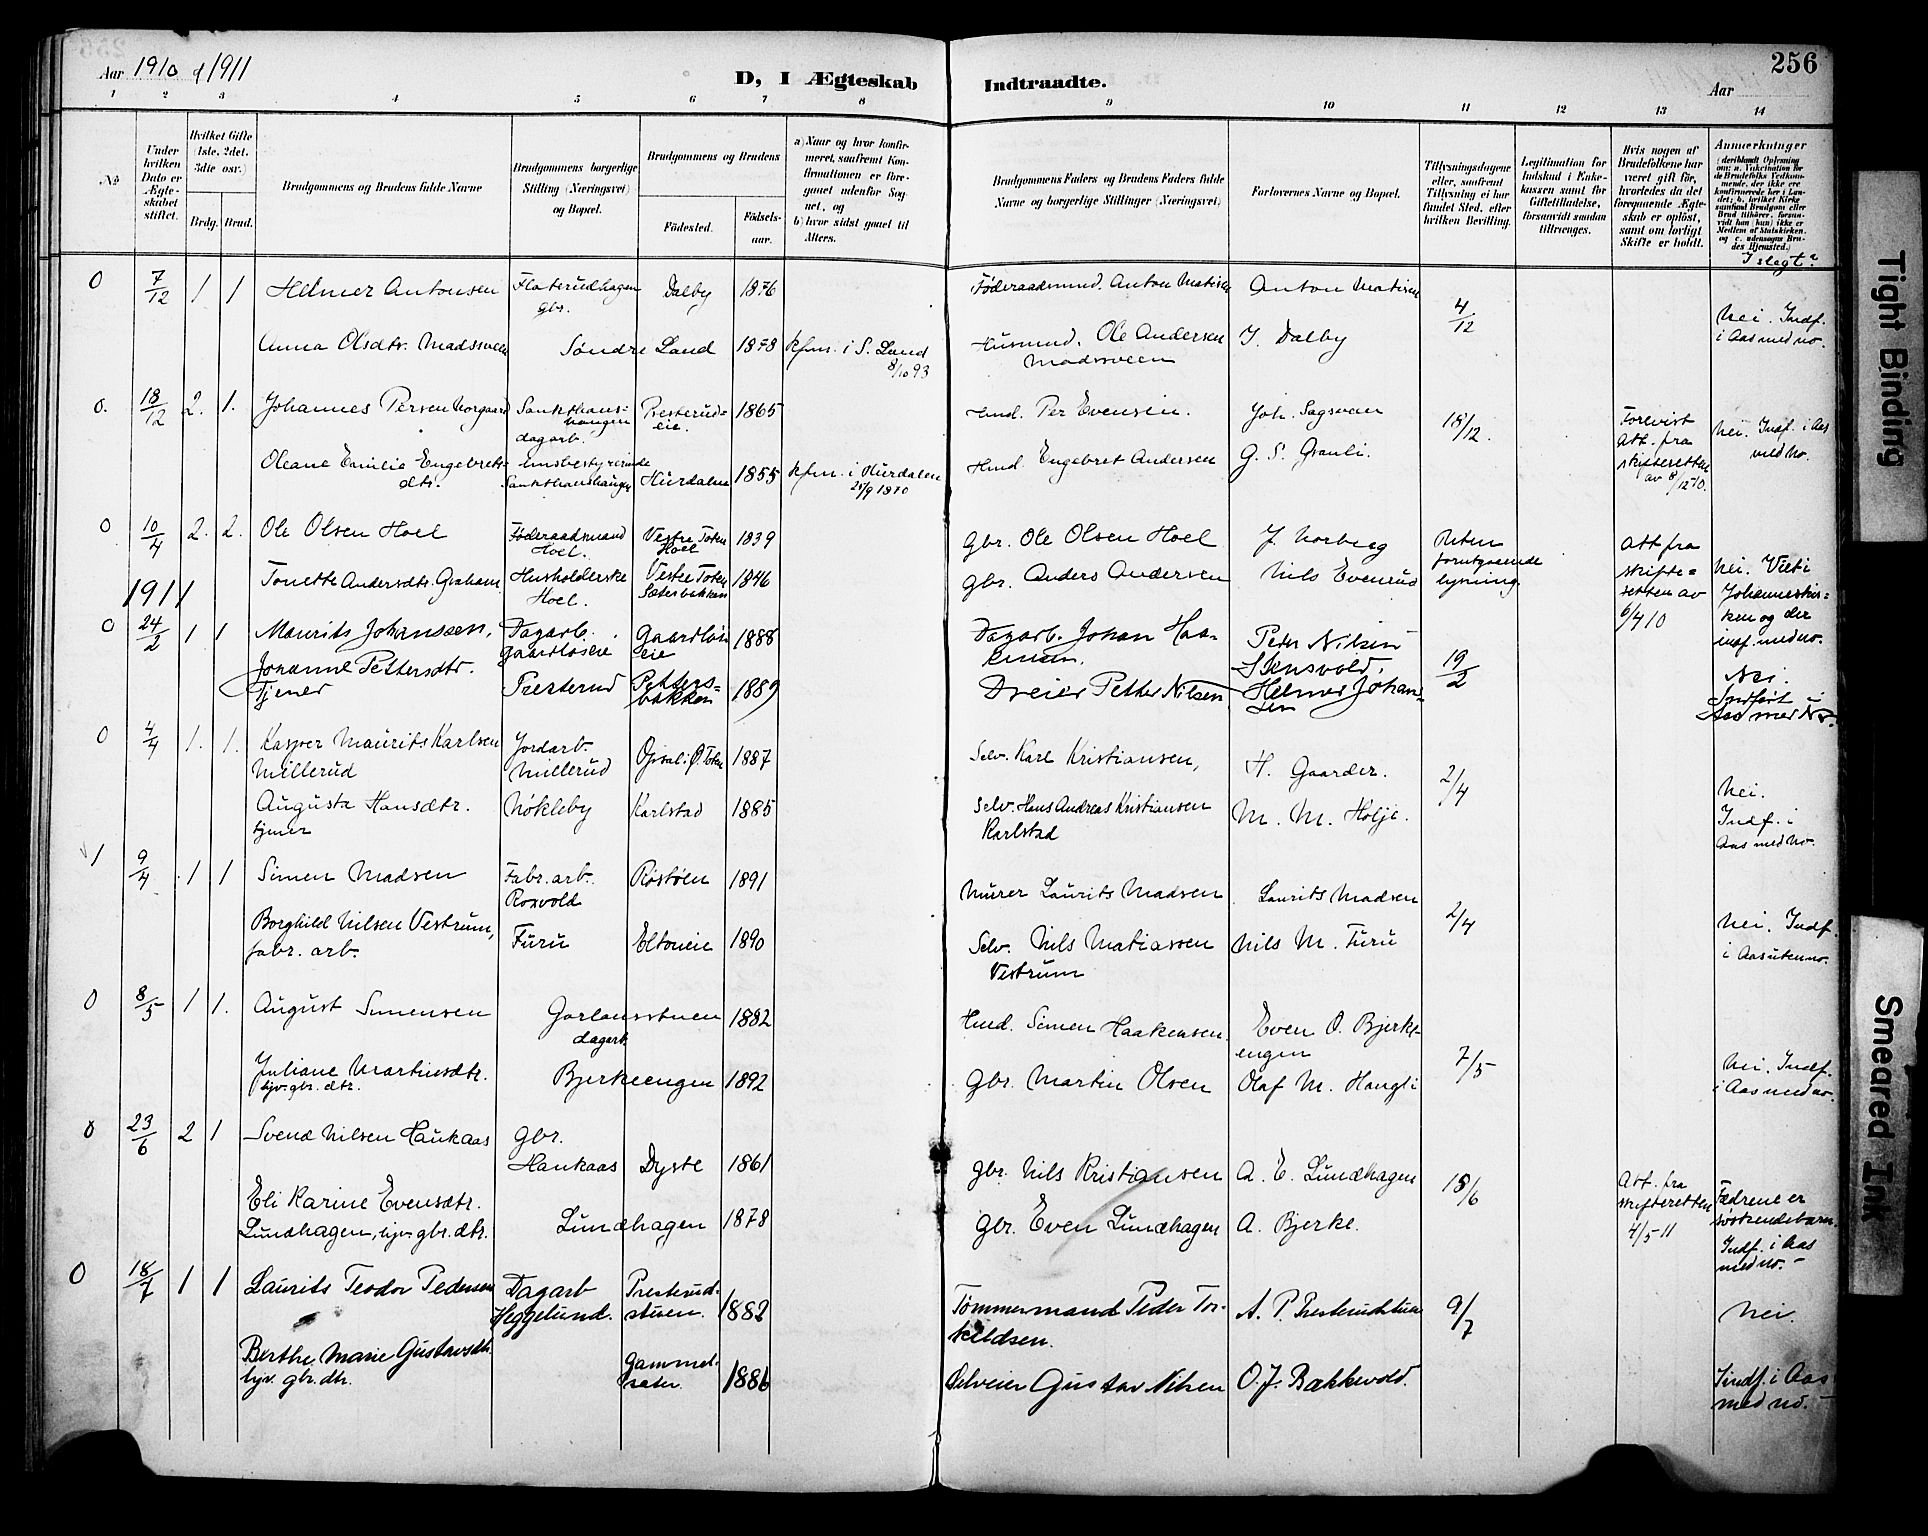 256
Aar 1910 & 1911
D, I Ægteskab Indtraadte.
Aar
1 2 3 4 5 6 7 8 9 10 11 12 13 14
No
Under hvilken Dato er Ægteskabet stiftet.
Hvilket Gifte (1ste, 2det, 3die osv.)
Brdg. Brud.
Brudgommens og Brudens fulde Navne
Brudgommens borgerlige Stilling (Næringsvei) og Bopæl.
Brudgommens og Brudens
Fødested.
Fødselsaar.
a) Naar og hvor konfirmeret, saafremt Konfirmationen er foregaaet udenfor Sognet, og
b) hvor sidst gaaet til Alters.
Brudgommens Faders og Brudens Faders fulde Navne og borgerlige Stillinger (Næringsvei)
Forlovernes Navne og Bopæl.
Tillysningsdagene eller, saafremt Tillysning ei har fundet Sted, efter hvilken Bevilling.
Legitimation for Indskud i Enkekassen samt for Giftetilladelse, forsaavidt saadan tiltrænges.
Hvis nogen af Brudefolkene har været gift før, hvorledes da det foregaaende Ægteskab er opløst, samt om lovligt Skifte er holdt.
Anmerkninger
I slegt?
0 7/12 1 1 Helmer Antonsen Flaterudhagen gbr. Dalby 1876 Føderaadsmd. Anton Matisen Anton Matisen 4/12
Anna Olsdtr. Madssveen Søndre Land 1878 kfm. i S. Land 8/10 93 Husmd. Ole Andersen Madssveen J. Dalby Nei. Indf. i Aas med no.
0. 18/12 2. 1. Johannes Persen Norgaard Sankthanshaugen dagarb. Presterudeie. 1865 Hmd. Per Evensen. Joh. Sagsveen 18/12. Forevist att. fra skifteretten av 8/12 10. Nei. Indf. i Aas med No.
Oleane Emilie Engebretsdtr. husbestyrerinde Sankthanshaugen Hurdalen 1855 kfm. i Hurdalen 25/9 1870 Hmd. Engebret Andersen G. S. Granli.
0 10/4 2. 2. Ole Olsen Hoel Føderaadsmand Hoel. Vestre Toten Hoel 1839 Gbr. Ole Olsen Hoel J. Norberg Uten forutgaaende lysning. Att fra skifteretten av 6/4 10 Nei. Viet i Johanneskirken og der indf. med no.
Tonette Andersdtr. Husholderske Hoel. Vestre Toten Sæterbakken 1846 Gbr. Anders Andersen Nils Evenrud
1911
0 24/2 1 1 Maurits Johanssen, Dagarb. gaardløseie Gaardløseie 1888 Dagarb. Johan Haakensen. Peter Nilsen Stensvold, 19/2
Johanne Pettersdtr. Tjener Presterud Pettersbakken 1889 Dreier Petter Nilsen Helmer Johansen Nei. Indført i Aas med No.
0 4/4 1. 1. Kasper Maurits Karlsen Millerud Jordarb. Millerud Opsal i Ø. Toten 1887 Selv. Karl Kristiansen, H. Gaarder. 2/4
Augusta Hansdtr. tjener Nøkleby Karlstad 1885 Selv. Hans Andreas Kristiansen Karlstad M. M. Holje. Nei. Indf. i Aas med No.
1 9/4 1 1 Simen Madsen Fabr. arb. Rosvold Røstøen 1891 Murer Laurits Madsen Laurits Madsen 2/4
Borghild Nilsen Vestrum, fabr. arb. Furu Eltoneie 1890 Selv. Nils Matiassen Vestrum Nils M. Furu Nei. Indf. i Aas uten no.
0 8/5 1 1. August Simensen Garlausstuen dagarb. 1882 Hmd. Simen Haakensen. Even O. Bjerkeengen 7/5
Juliane Martinsdtr. hjv. gbr. dtr. Bjerkeengen 1892 Gbr. Martin Olsen Olaf M. Haugli Nei. Indf. i Aas med no.
0 23/6 2 1 Svend Nilsen Haukaas Gbr. Haukaas Dyste 1861 Gbr. Nils Kristiansen A. E. Lundhagen 18/6 Att. fra skifteretten 4/5 11 Fædrene er søskendebarn. Indf. i Aas med no.
Eli Karine Evensdtr. Lundhagen, hjv. gbr. dtr. Lundhagen 1878 Gbr. Even Lundhagen A. Bjerke.
0 18/7 1 1 Laurits Teodor Pedersen Dagarb Heggelund. Presterudstuen. 1882 Tømmermand Peder Torkeldsen. A. P. Presterudstuen 9/7 Nei.
Berthe Marie Gustavsdtr. hjv. gbr. dtr. Gammelsæter. 1886 Selveier Gustav Nilsen O. J. Bakkevold. Indf. i Aas med no.
Tight Binding
Smeared Ink